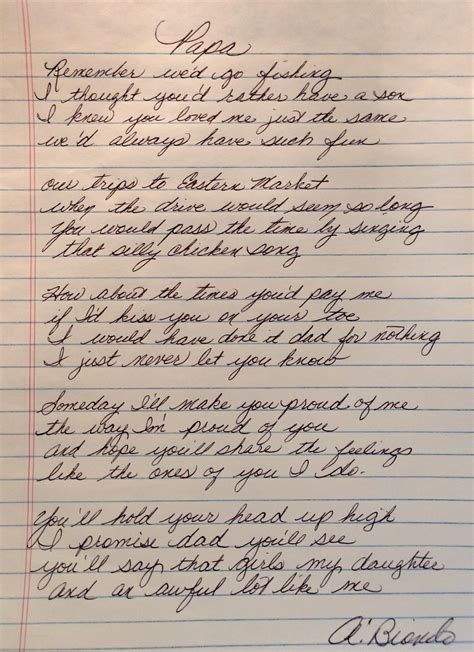 Papa
Remember we'd go fishing
I thought you'd rather have a son
I knew you loved me just the same
we'd always have such fun
our trips to Eastern Market
when the drive would seem so long
You would pass the time by singing
that silly chicken song
How about the times you'd pay me
if I'd kiss you on your toe
I would have done it dad for nothing
I just never let you know
Someday I'll make you proud of me
the way I'm proud of you
and hope you'll share the feelings
like the ones of you I do.
You'll hold your head up high
I promise dad you'll see
you'll say that girls my daughter
And an awful lot like me
A. Biondo